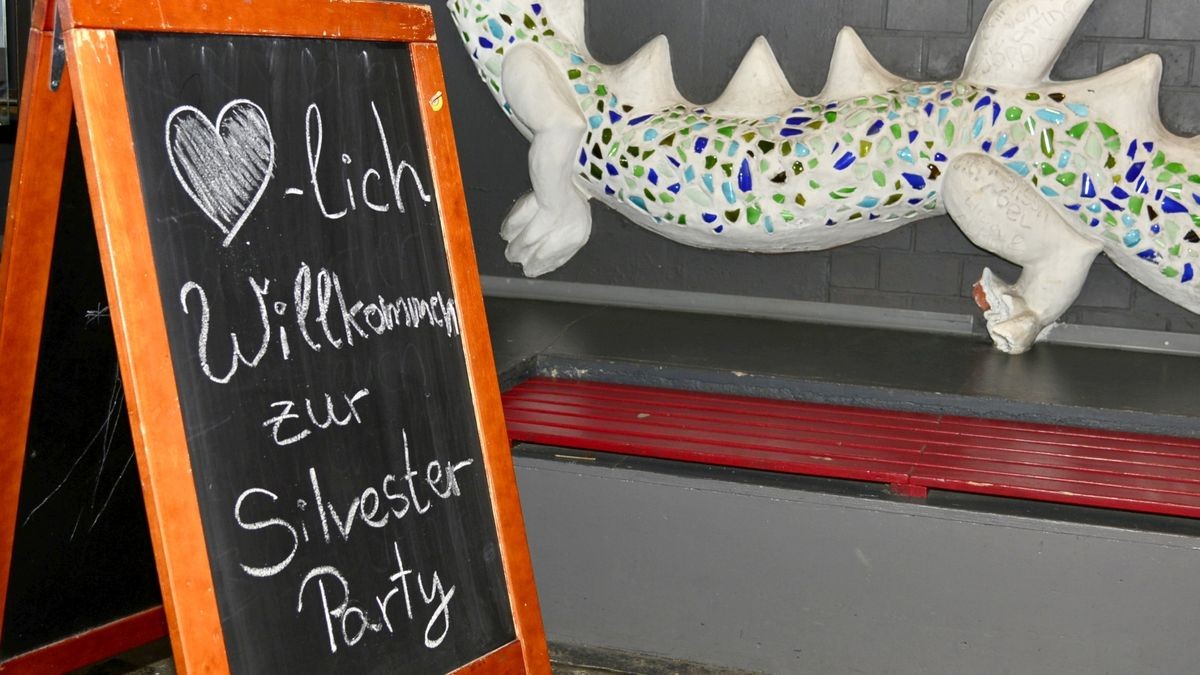 ♥-lich
Willkommen
zur
Silvester
Party